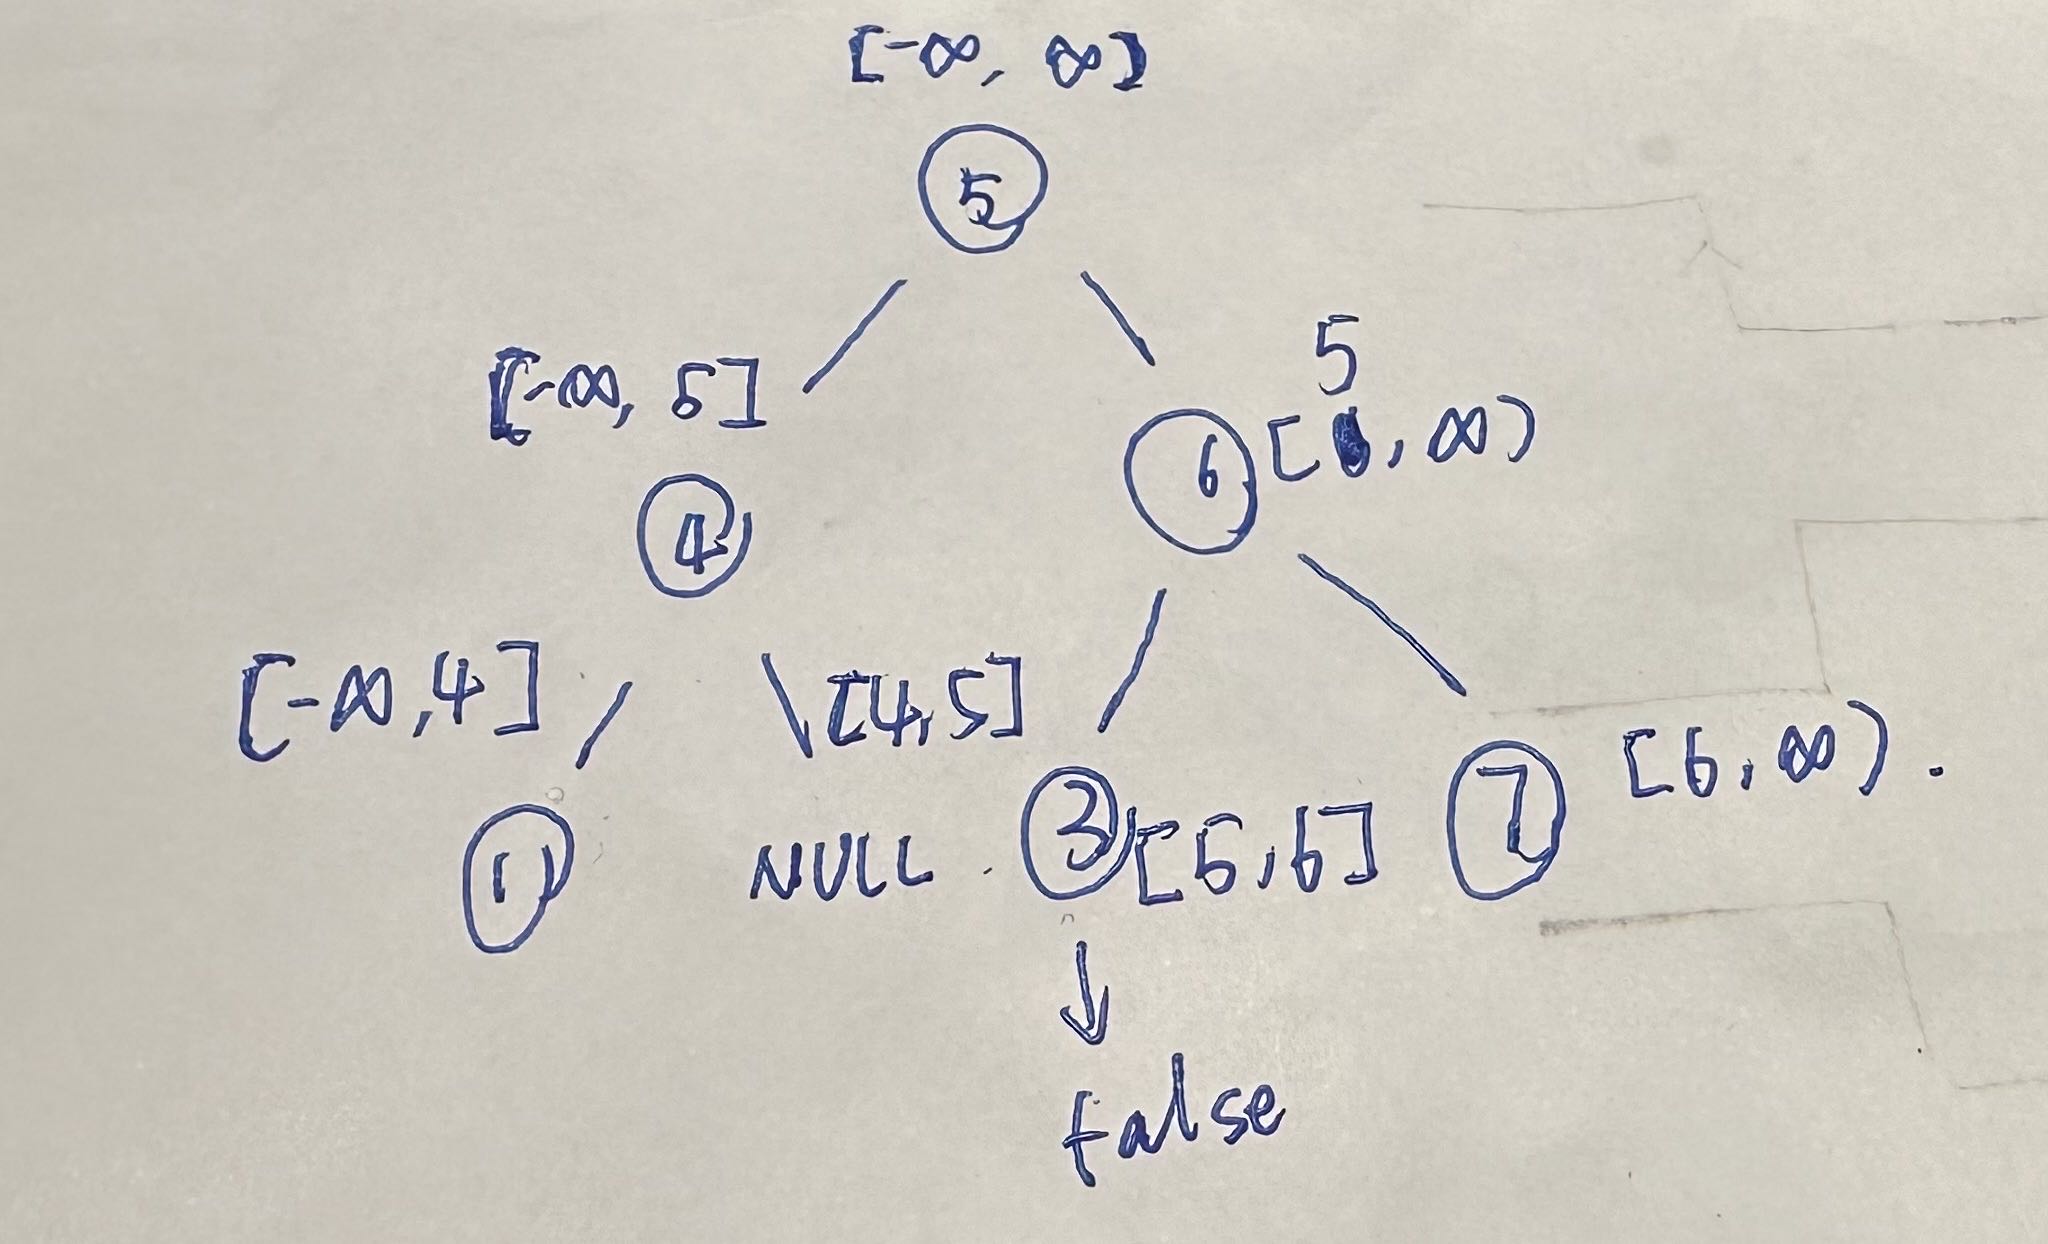 [-∞, ∞]
5
[-∞, 5]
5
4
6 [ , ∞)
[-∞,4]
[4,5]
1
NULL
3 [5,6]
7
[6,∞).
false